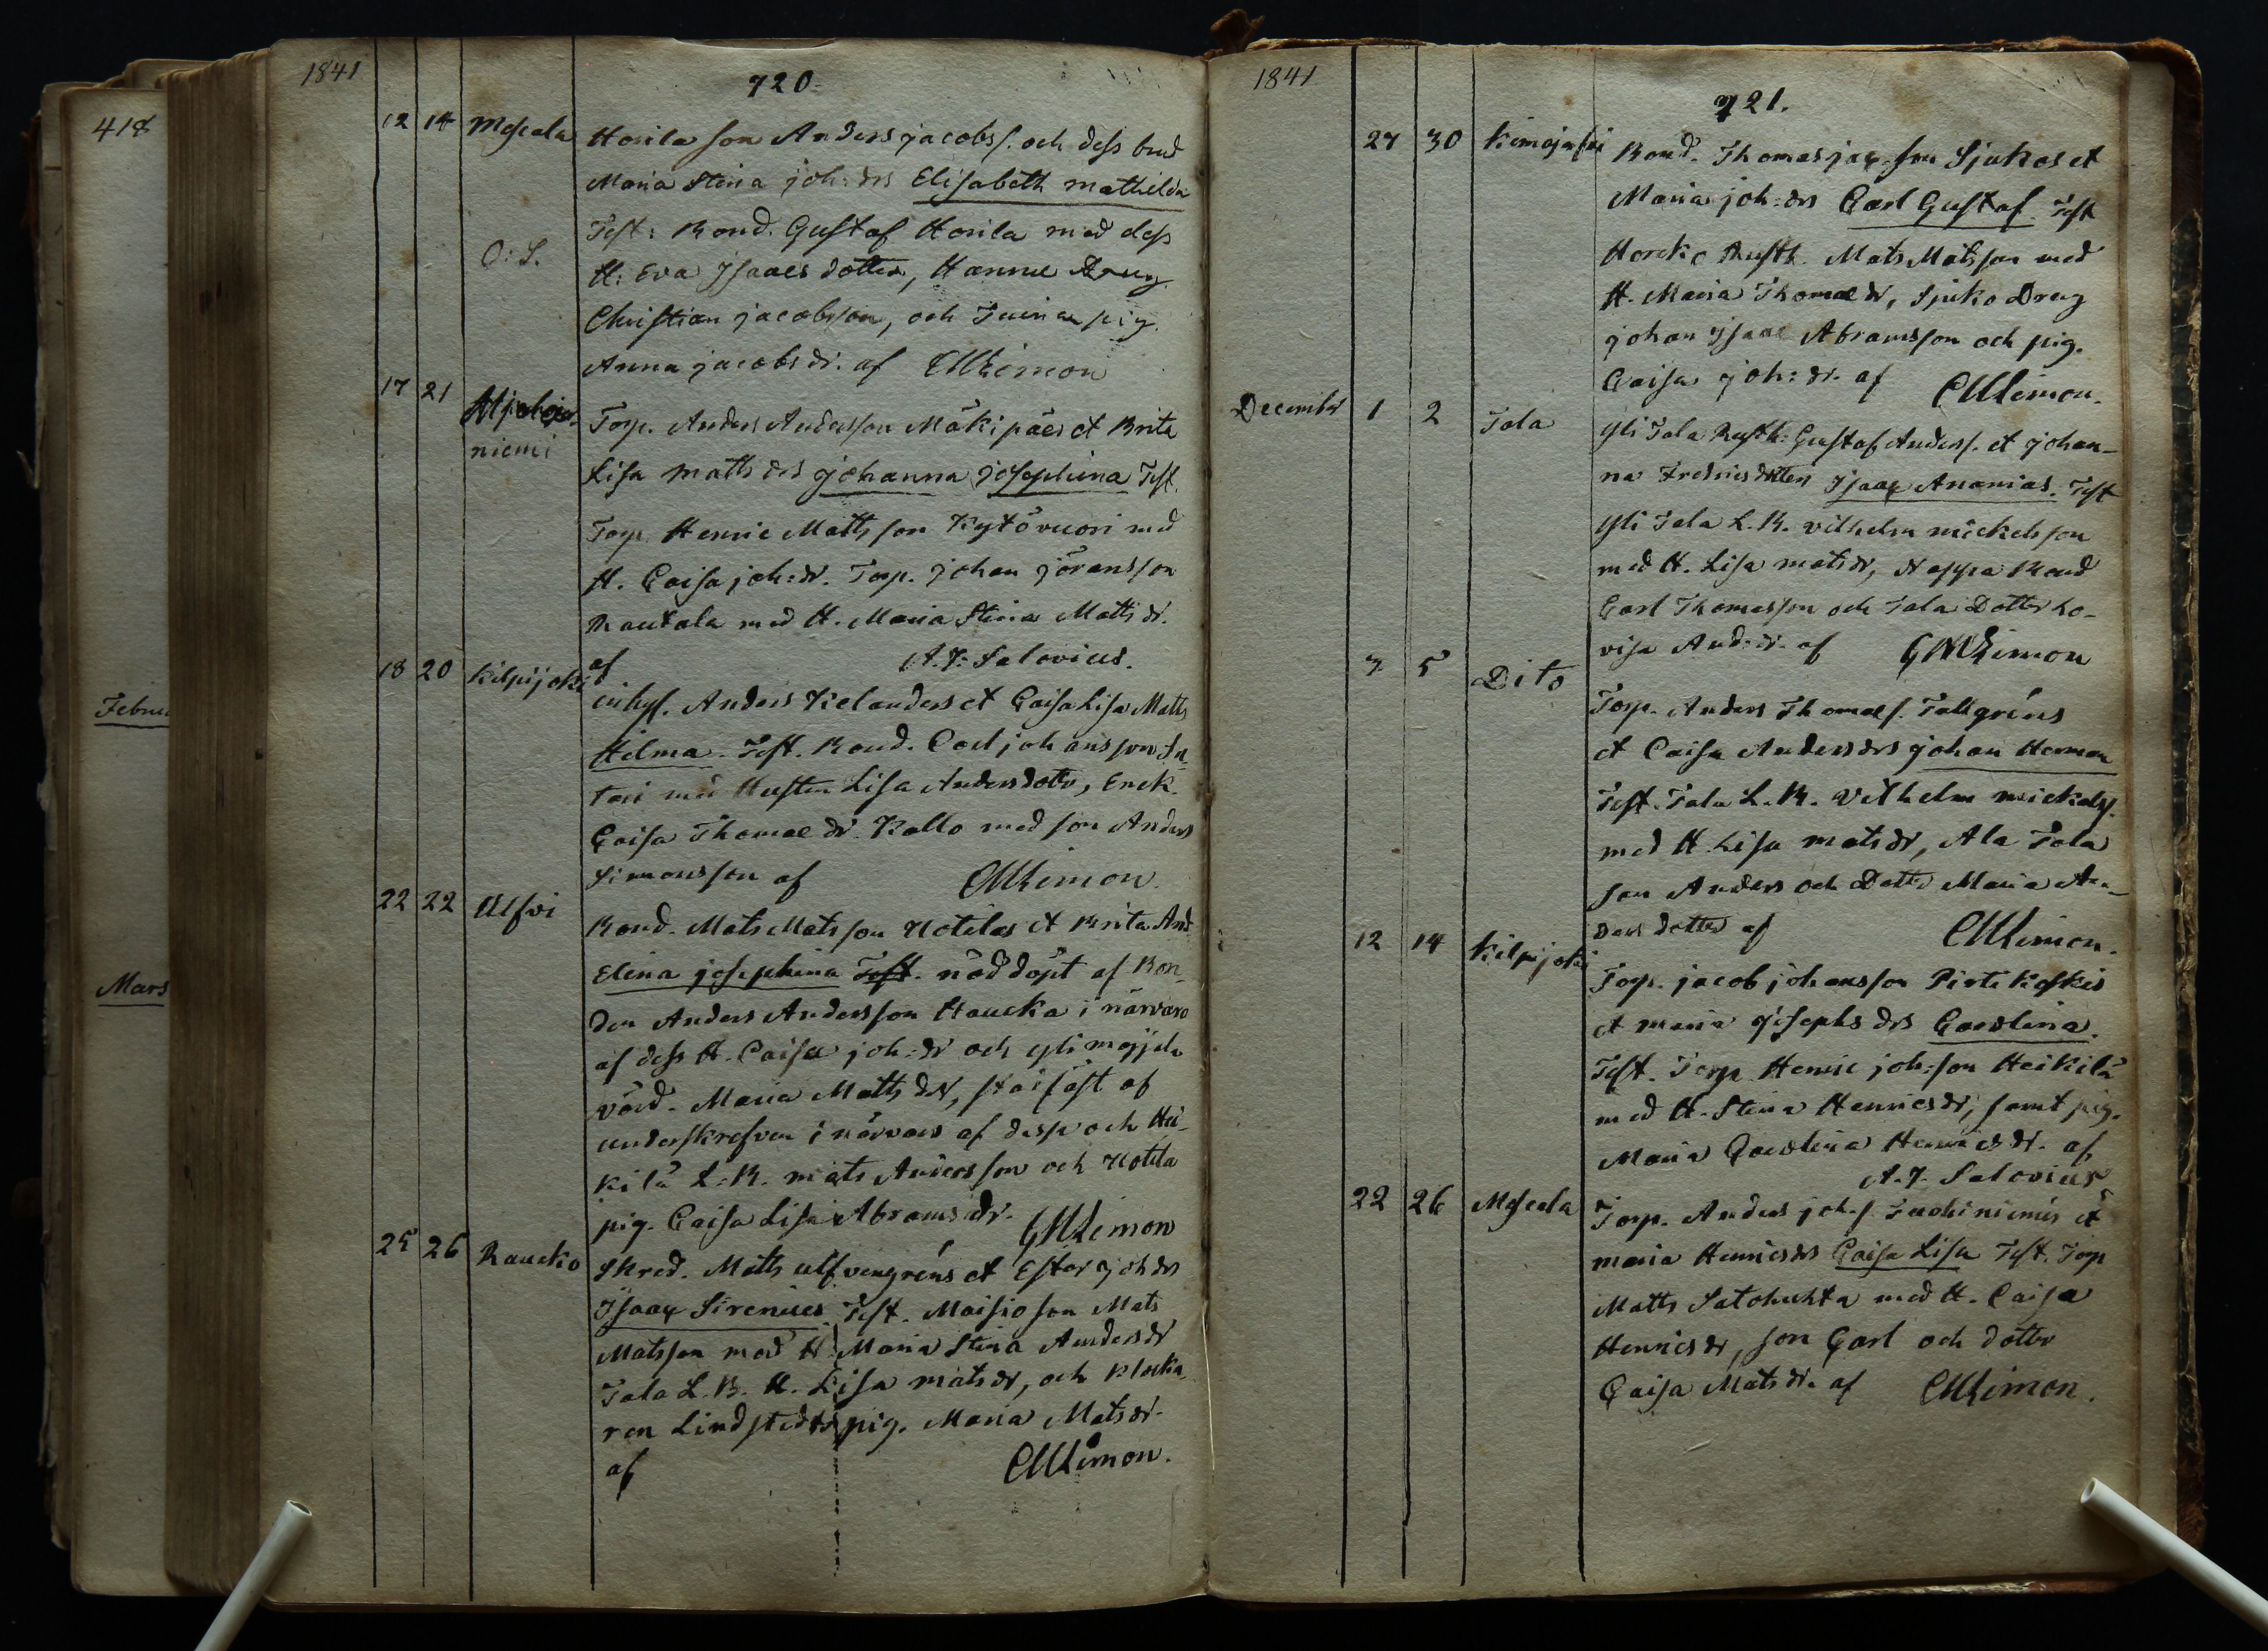 418
Februa
Mars
1841
720.
12 14 Moseala Horila son Anders jacobs s. och dess brud
Maria Stina joh: drs Elisabeth mathilda
O: S. Test: Bond. Gustaf Horila med dess
H: Eva Isaacs dotter, Hannu Dreng
Christian jacobsson, och Tuina pig.
Anna jacobs dr. af CMLimon
17 21 niemi Torp. Anders Andersson Mäkipäes et Brita
Lisa Matts drs johanna josephina Test.
Torp. Henric Mattsson Kytövuori med
H. Caisa joh: dr. Torp. johan jöransson
Rautala med H. Maria Stina Matts dr.
af A. J: Salovius.
18 20 Kilpijoki inhys. Anders Kelanders et Caisa Lisa Matts
Hilma. Test. Bond. Carl johansson An
tari med Hustru Lisa Andersdotter, Enck.
Caisa Thomae dr. Kallo med son Anders
Simonsson af CMLimon.
22 22 Ulfvi Bond. Mats Matsson Uotilas et Brita And
Elina josephina Test. nöddöpt af Bon
den Anders Andersson Haucka i närvaro
af dess H. Caisa joh: dr och yli mojjela
värd. Maria Matts dr, stadfäst af
underskrefven i närvaro af desse och Hei-
kilä L: B. mats Andersson och Uotila
pig. Caisa Lisa Abrams dr. GMLimon
25 26 Raucko Skred. Matts ulfvengréns et Ester joh drs
Isaac Sirenius Test. Maisio son Mats
Matsson med H. Maria Stina Anders dr
Tala L. B. H. Lisa mats dr, och klocka
ren Lindstedts pig. Maria Mats dr.
af CMLimon.
1841
721.
27 30 Bond. Thomas jac. son Sjukos et
Maria joh: drs Carl Gustaf. Test
Horcko Rusth. Mats Matsson med
H. Maria Thomae dr, Sjuko Dreng
johan Isaac Abramsson och pig.
Caisa joh: dr. af CMLimon.
December 1 2 Tala Yli Tala Rusth: Gustaf Anders s. et johan-
na Fredrics dotters Isaac Ananias. Test
Yli Tala L. B. vilhelm mickelsson
med H. Lisa mats dr, Nappa Bond
Carl Thomasson och Tala Dotter Lo-
visa And: dr. af GMLimon
3 5 Dito Torp. Anders Thomae s. Tallgréns
et Caisa Anders drs johan Herman
Test. Tala L. B. Vilhelm mickels s.
med H. Lisa mats dr, Ala Tala
son Anders och Dotter Maria An-
ders dotter af CMLimon.
12 14 Kilpijoki Torp. jacob johansson Pirtikoskis
et maria josephs drs Carolina.
Test. Torp. Henric joh: son Heikilä
med H. Stina Henrics dr, samt pig.
Maria Carolina Henrics dr. af
A. J. Salovius
22 26 Moseala Torp. Anders joh. s. Tuohiniemis et
maria Henrics drs Caisa Lisa Test. Torp
Matts Satohuhta med H. Caisa
Henrics dr, son Carl och dotter
Caisa Mats dr. af CMLimon.